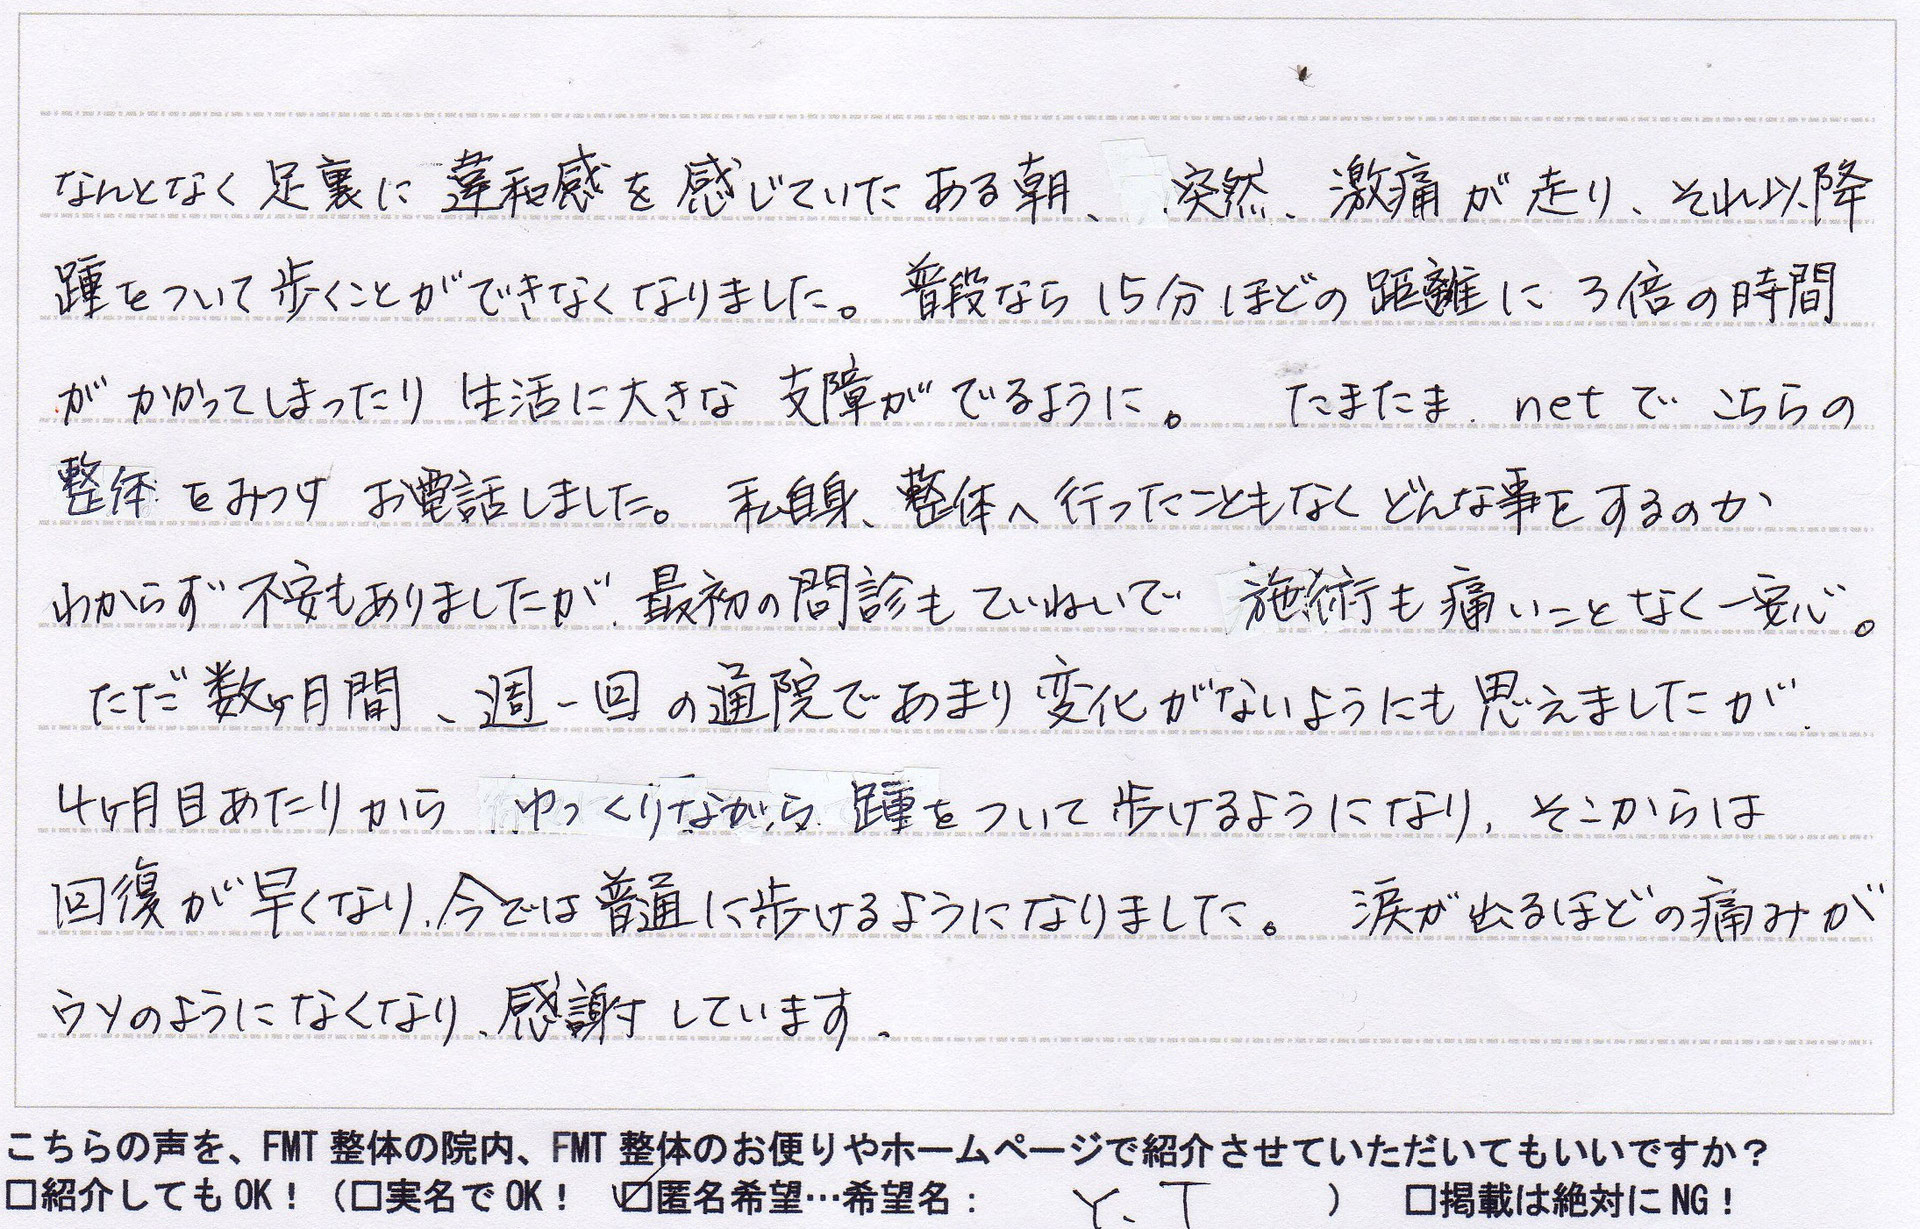 なんとなく足裏に違和感を感じていたある朝、突然、激痛が走り、それ以降
踵をついて歩くことができなくなりました。普段なら15分ほどの距離に3倍の時間
がかかってしまったり生活に大きな支障がでるように。たまたま、netでこちらの
整体をみつけお電話しました。私自身、整体へ行ったこともなくどんな事をするのか
わからず不安もありましたが、最初の問診もていねいで施術も痛いことなく一安心。
ただ数ヶ月間、週一回の通院であまり変化がないようにも思えましたが、
4ヶ月目あたりからゆっくりながら踵をついて歩けるようになり、そこからは
回復が早くなり、今では普通に歩けるようになりました。涙が出るほどの痛みが
ウソのようになくなり、感謝しています。
こちらの声を、FMT整体の院内、FMT整体のお便りやホームページで紹介させていただいてもいいですか？
□紹介してもOK！（□実名でOK！ ☑匿名希望…希望名： Y.T ） □掲載は絶対にNG！